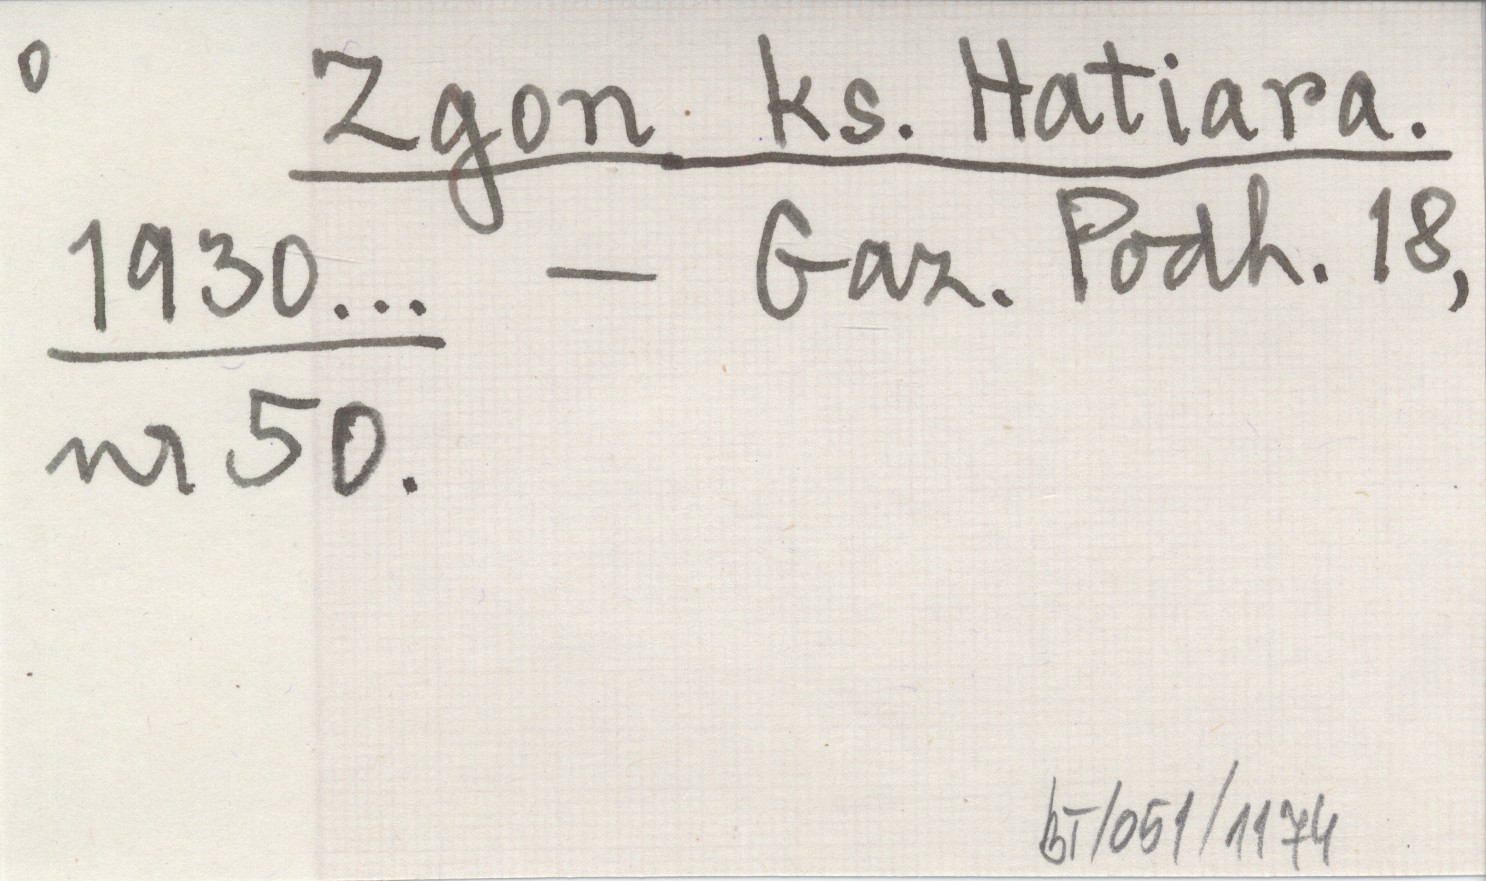 0 Zgon ks. Hatiara.
1930... — Gaz. Podh. 18,
nr 50.
bT/051/1174